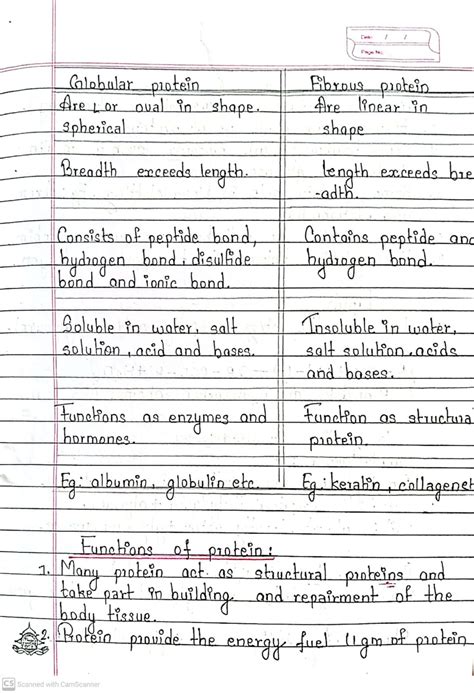 Date: / /
Page No:
Globular protein | Fibrous protein
Are or oval in shape. | Are linear in
spherical | shape
Breadth exceeds length. | length exceeds bre
-adth.
Consists of peptide bond, | Contains peptide and
hydrogen bond, disulfide | hydrogen bond.
bond and ionic bond.
Soluble in water, salt | Insoluble in water,
solution, acid and bases. | salt solution, acids
and bases.
Functions as enzymes and | Function as structura
hormones. | protein.
Eg: albumin, globulin etc. | Eg: keratin, collagenet
Functions of protein:
1. Many protein act as structural proteins and
take part in building and repairment of the
body tissue.
2. Protein provide the energy fuel (1gm of protein
CS Scanned with CamScanner